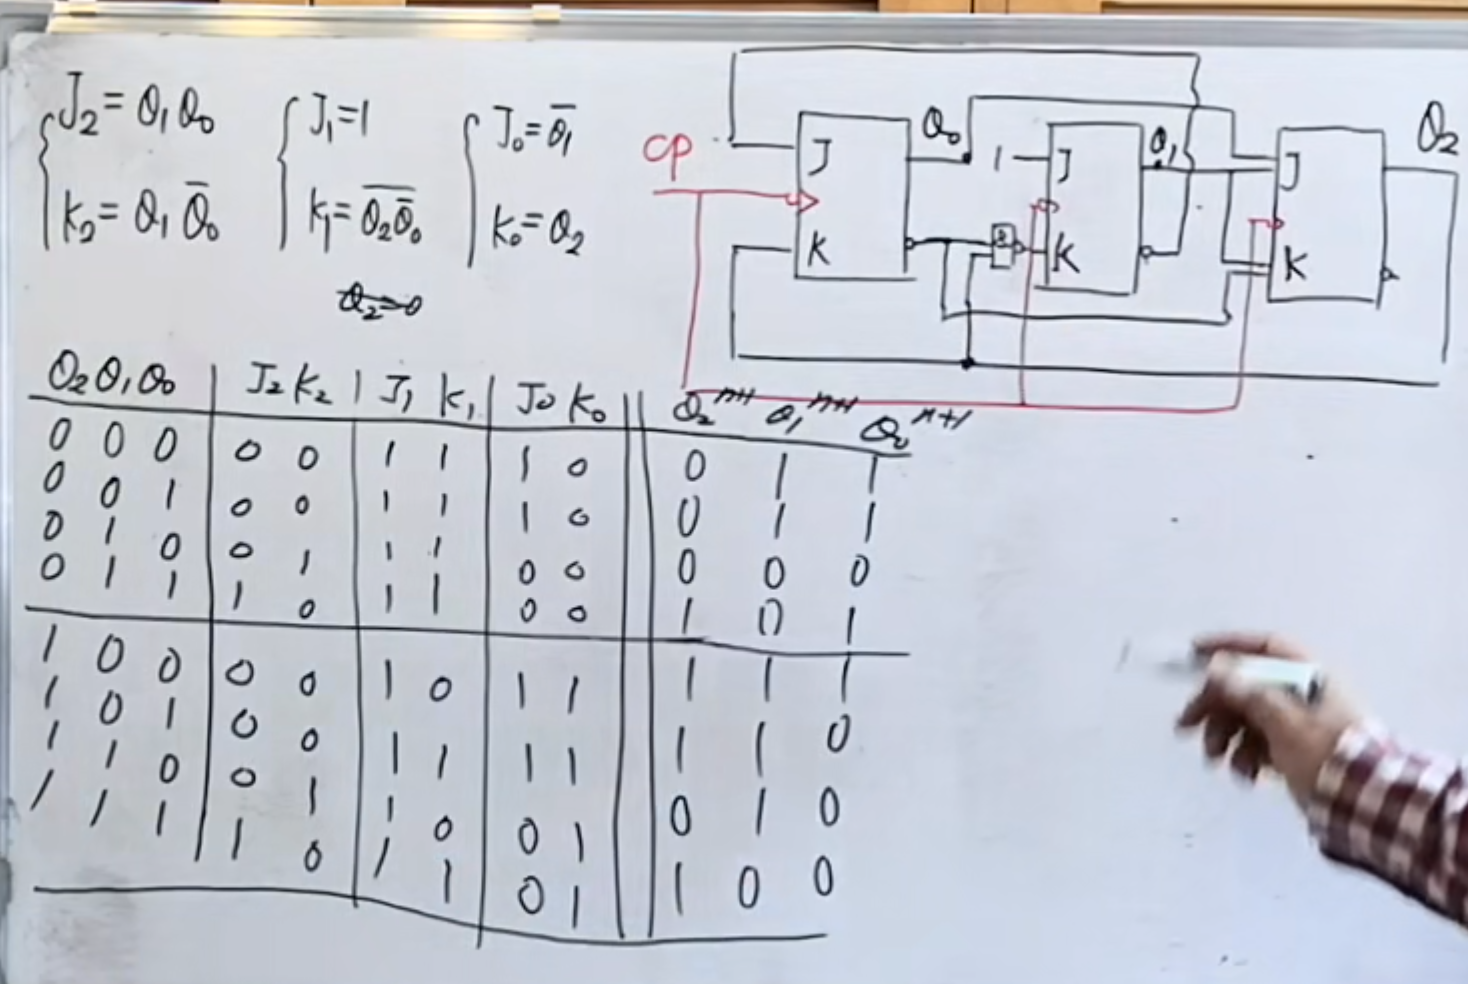 J₂ = Q₁Q₀
K₂ = Q₁Q̅₀
J₁ = 1
K₁ = \overline{Q₂Q̅₀}
J₀ = Q̅₁
K₀ = Q₂
Q₂ = 0
CP
J
K
Q₀
&
1
J
K
Q₁
J
K
Q₂
Q₂ Q₁ Q₀ | J₂ K₂ | J₁ K₁ | J₀ K₀ || Q₂ⁿ⁺¹ Q₁ⁿ⁺¹ Q₀ⁿ⁺¹
0 0 0 | 0 0 | 1 1 | 1 0 || 0 1 1
0 0 1 | 0 0 | 1 1 | 1 0 || 0 1 1
0 1 0 | 0 1 | 1 1 | 0 0 || 0 0 0
0 1 1 | 1 0 | 1 1 | 0 0 || 1 0 1
1 0 0 | 0 0 | 1 0 | 1 1 || 1 1 1
1 0 1 | 0 0 | 1 1 | 1 1 || 1 1 0
1 1 0 | 0 1 | 1 0 | 0 1 || 0 1 0
1 1 1 | 1 0 | 1 1 | 0 1 || 1 0 0